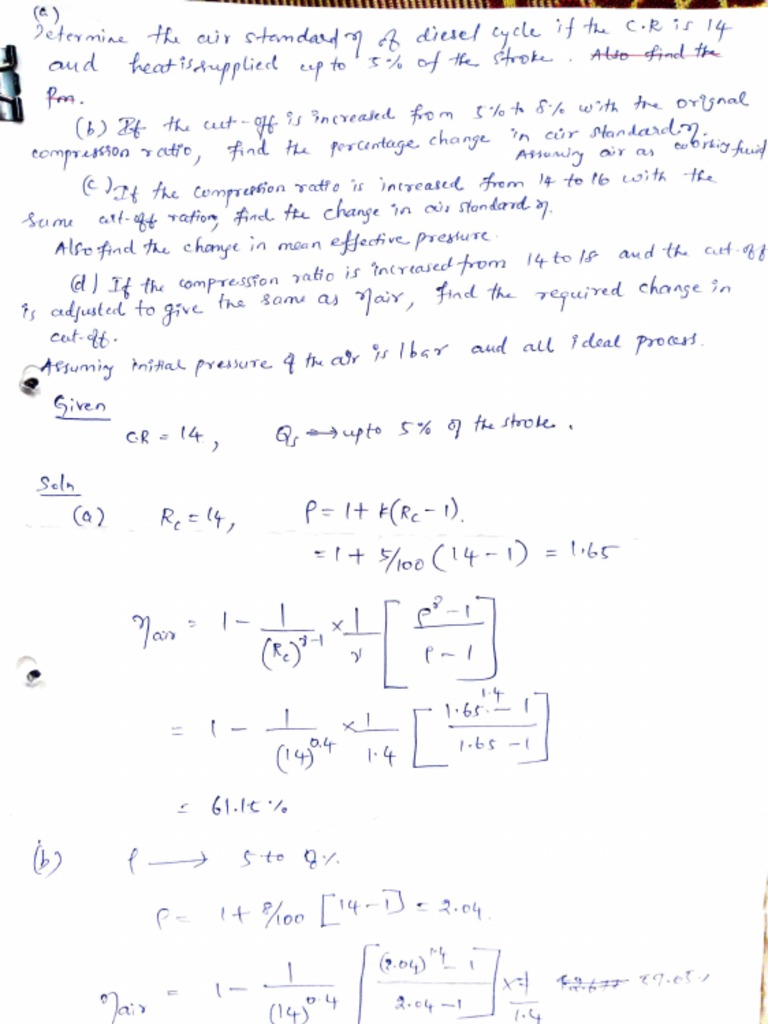 (a)
Determine the air standard η of diesel cycle if the C.R is 14
and heat is supplied up to 5% of the stroke. Also find the
Pm.
(b) If the cut-off is increased from 5% to 8% with the orignal
compression ratio, find the percentage change in air standard η.
Assuming air as working fluid
(c) If the compression ratio is increased from 14 to 16 with the
same cut-off ration, find the change in air standard η.
Also find the change in mean effective pressure.
(d) If the compression ratio is increased from 14 to 18 and the cut-off
is adjusted to give the same as ηair, find the required change in
cut-off.
Assuming initial pressure of the air is 1 bar and all ideal process.
Given
C.R = 14, Qs → upto 5% of the stroke.
Soln
(a) Rc = 14, ρ = 1 + k(Rc - 1).
= 1 + 5/100 (14 - 1) = 1.65
ηair = 1 - 1/(Rc)^γ-1 × 1/γ [ρ^γ - 1 / ρ - 1]
= 1 - 1/(14)^0.4 × 1/1.4 [1.65^1.4 - 1 / 1.65 - 1]
= 61.15 %
(b) ρ → 5 to 8%
ρ = 1 + 8/100 [14 - 1] = 2.04
ηair = 1 - 1/(14)^0.4 [(2.04)^1.4 - 1 / 2.04 - 1] × 1/1.4